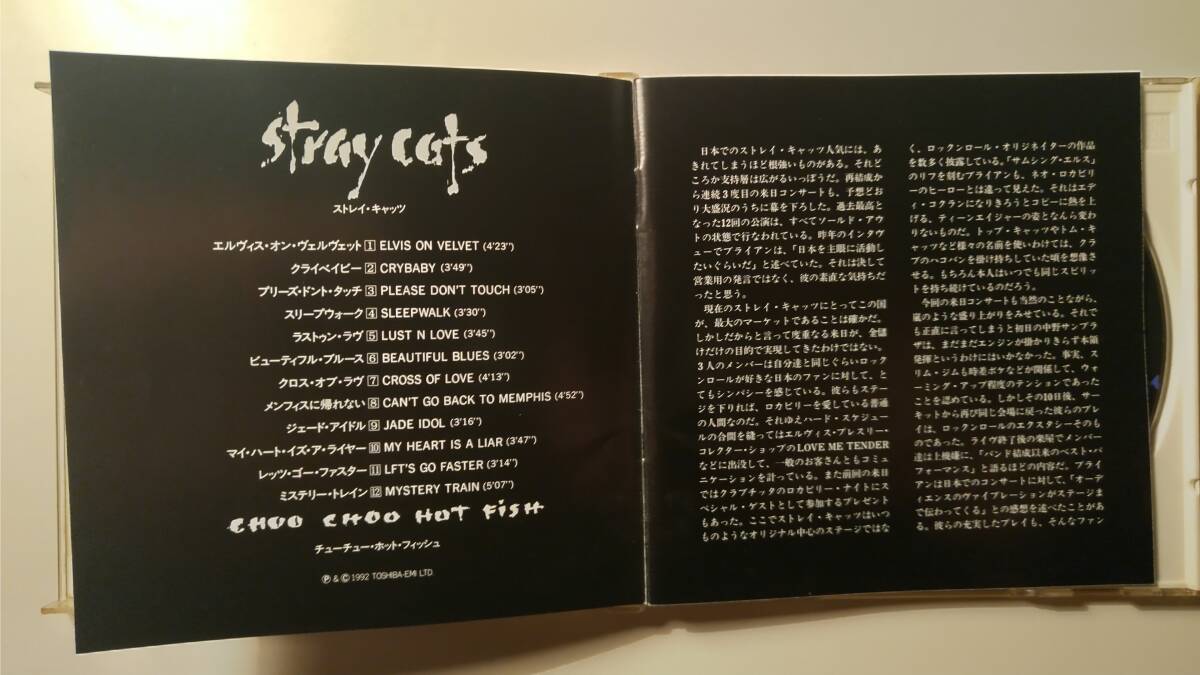 stray cats
ストレイ・キャッツ
エルヴィス・オン・ヴェルヴェット 1 ELVIS ON VELVET (4'23")
クライベイビー 2 CRYBABY (3'49")
プリーズ・ドント・タッチ 3 PLEASE DON'T TOUCH (3'05")
スリープウォーク 4 SLEEPWALK (3'30")
ラストゥン・ラヴ 5 LUST N LOVE (3'45")
ビューティフル・ブルース 6 BEAUTIFUL BLUES (3'02")
クロス・オブ・ラヴ 7 CROSS OF LOVE (4'13")
メンフィスに帰れない 8 CAN'T GO BACK TO MEMPHIS (4'52")
ジェード・アイドル 9 JADE IDOL (3'16")
マイ・ハート・イズ・ア・ライヤー 10 MY HEART IS A LIAR (3'47")
レッツ・ゴー・ファスター 11 LFT'S GO FASTER (3'14")
ミステリー・トレイン 12 MYSTERY TRAIN (5'07")
CHOO CHOO HOT FiSH
チューチュー・ホット・フィッシュ
Ⓟ & © 1992 TOSHIBA-EMI LTD.
日本でのストレイ・キャッツ人気には、あ
きれてしまうほど根強いものがある。それど
ころか支持層は広がるいっぽうだ。再結成か
ら連続3度目の来日コンサートも、予想どお
り大盛況のうちに幕を下ろした。過去最高と
なった12回の公演は、すべてソールド・アウ
トの状態で行なわれている。昨年のインタヴ
ューでブライアンは、「日本を主眼に活動し
たいぐらいだ」と述べていた。それは決して
営業用の発言ではなく、彼の素直な気持ちだ
ったと思う。
現在のストレイ・キャッツにとってこの国
が、最大のマーケットであることは確かだ。
しかしだからと言って度重なる来日が、金儲
けだけの目的で実現してきたわけではない。
3人のメンバーは自分達と同じぐらいロック
ンロールが好きな日本のファンに対して、と
てもシンパシーを感じている。彼らもステー
ジを下りれば、ロカビリーを愛している普通
の人間なのだ。それゆえハード・スケジュー
ルの合間を縫ってはエルヴィス・プレスリー・
コレクター・ショップのLOVE ME TENDER
などに出没して、一般のお客さんともコミュ
ニケーションを計っている。また前回の来日
ではクラブチッタのロカビリー・ナイトにス
ペシャル・ゲストとして参加するプレゼント
もあった。ここでストレイ・キャッツはいつ
ものようなオリジナル中心のステージではな
く、ロックンロール・オリジネイターの作品
を数多く披露している。「サムシング・エルス」
のリフを刻むブライアンも、ネオ・ロカビリ
ーのヒーローとは違って見えた。それはエデ
ィ・コクランになりきろうとコピーに熱を上
げる、ティーンエイジャーの姿となんら変わ
りないものだ。トップ・キャッツやトム・キ
ャッツなど様々の名前を使いわけては、クラ
ブのハコバンを掛け持ちしていた頃を想像さ
せる。もちろん本人はいつでも同じスピリッ
トを持ち続けているのだろう。
今回の来日コンサートも当然のことながら、
嵐のような盛り上がりをみせている。それで
も正直に言ってしまうと初日の中野サンプラ
ザは、まだまだエンジンが掛かりきらず本領
発揮というわけにはいかなかった。事実、ス
リム・ジムも時差ボケなどが関係して、ウォ
ーミング・アップ程度のテンションであった
ことを認めている。しかしその10日後、サー
キットから再び同じ会場に戻った彼らのプレ
イは、ロックンロールのエクスタシーそのも
のであった。ライヴ終了後の楽屋でメンバー
達は上機嫌に、「バンド結成以来のベスト・パ
フォーマンス」と語るほどの内容だ。ブライ
アンは日本でのコンサートに対して、「オーデ
ィエンスのヴァイブレーションがステージま
で伝わってくる」との感想を述べたことがあ
る。彼らの充実したプレイも、そんなファン